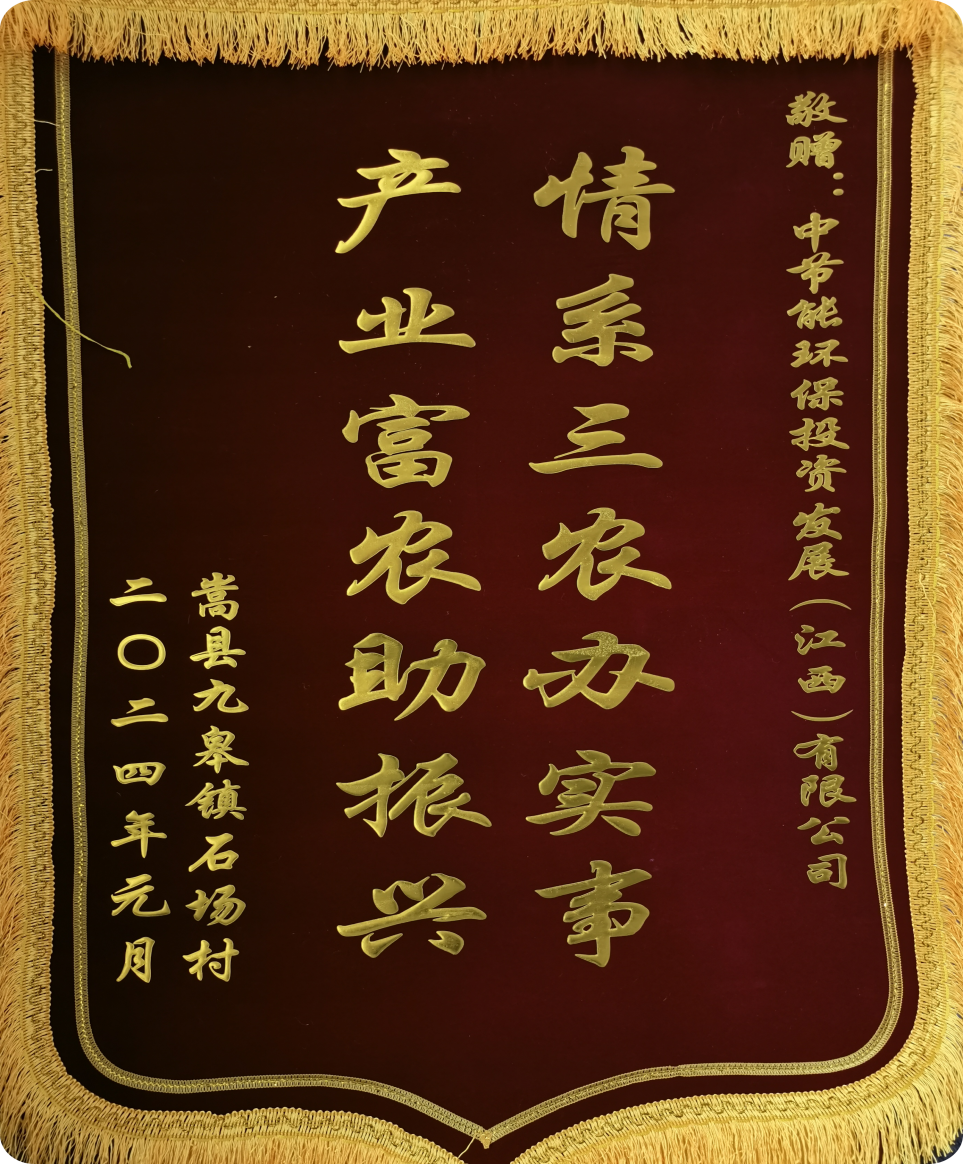 敬赠：中节能环保投资发展（江西）有限公司
情系三农办实事
产业富农助振兴
嵩县九皋镇石场村
二〇二四年元月